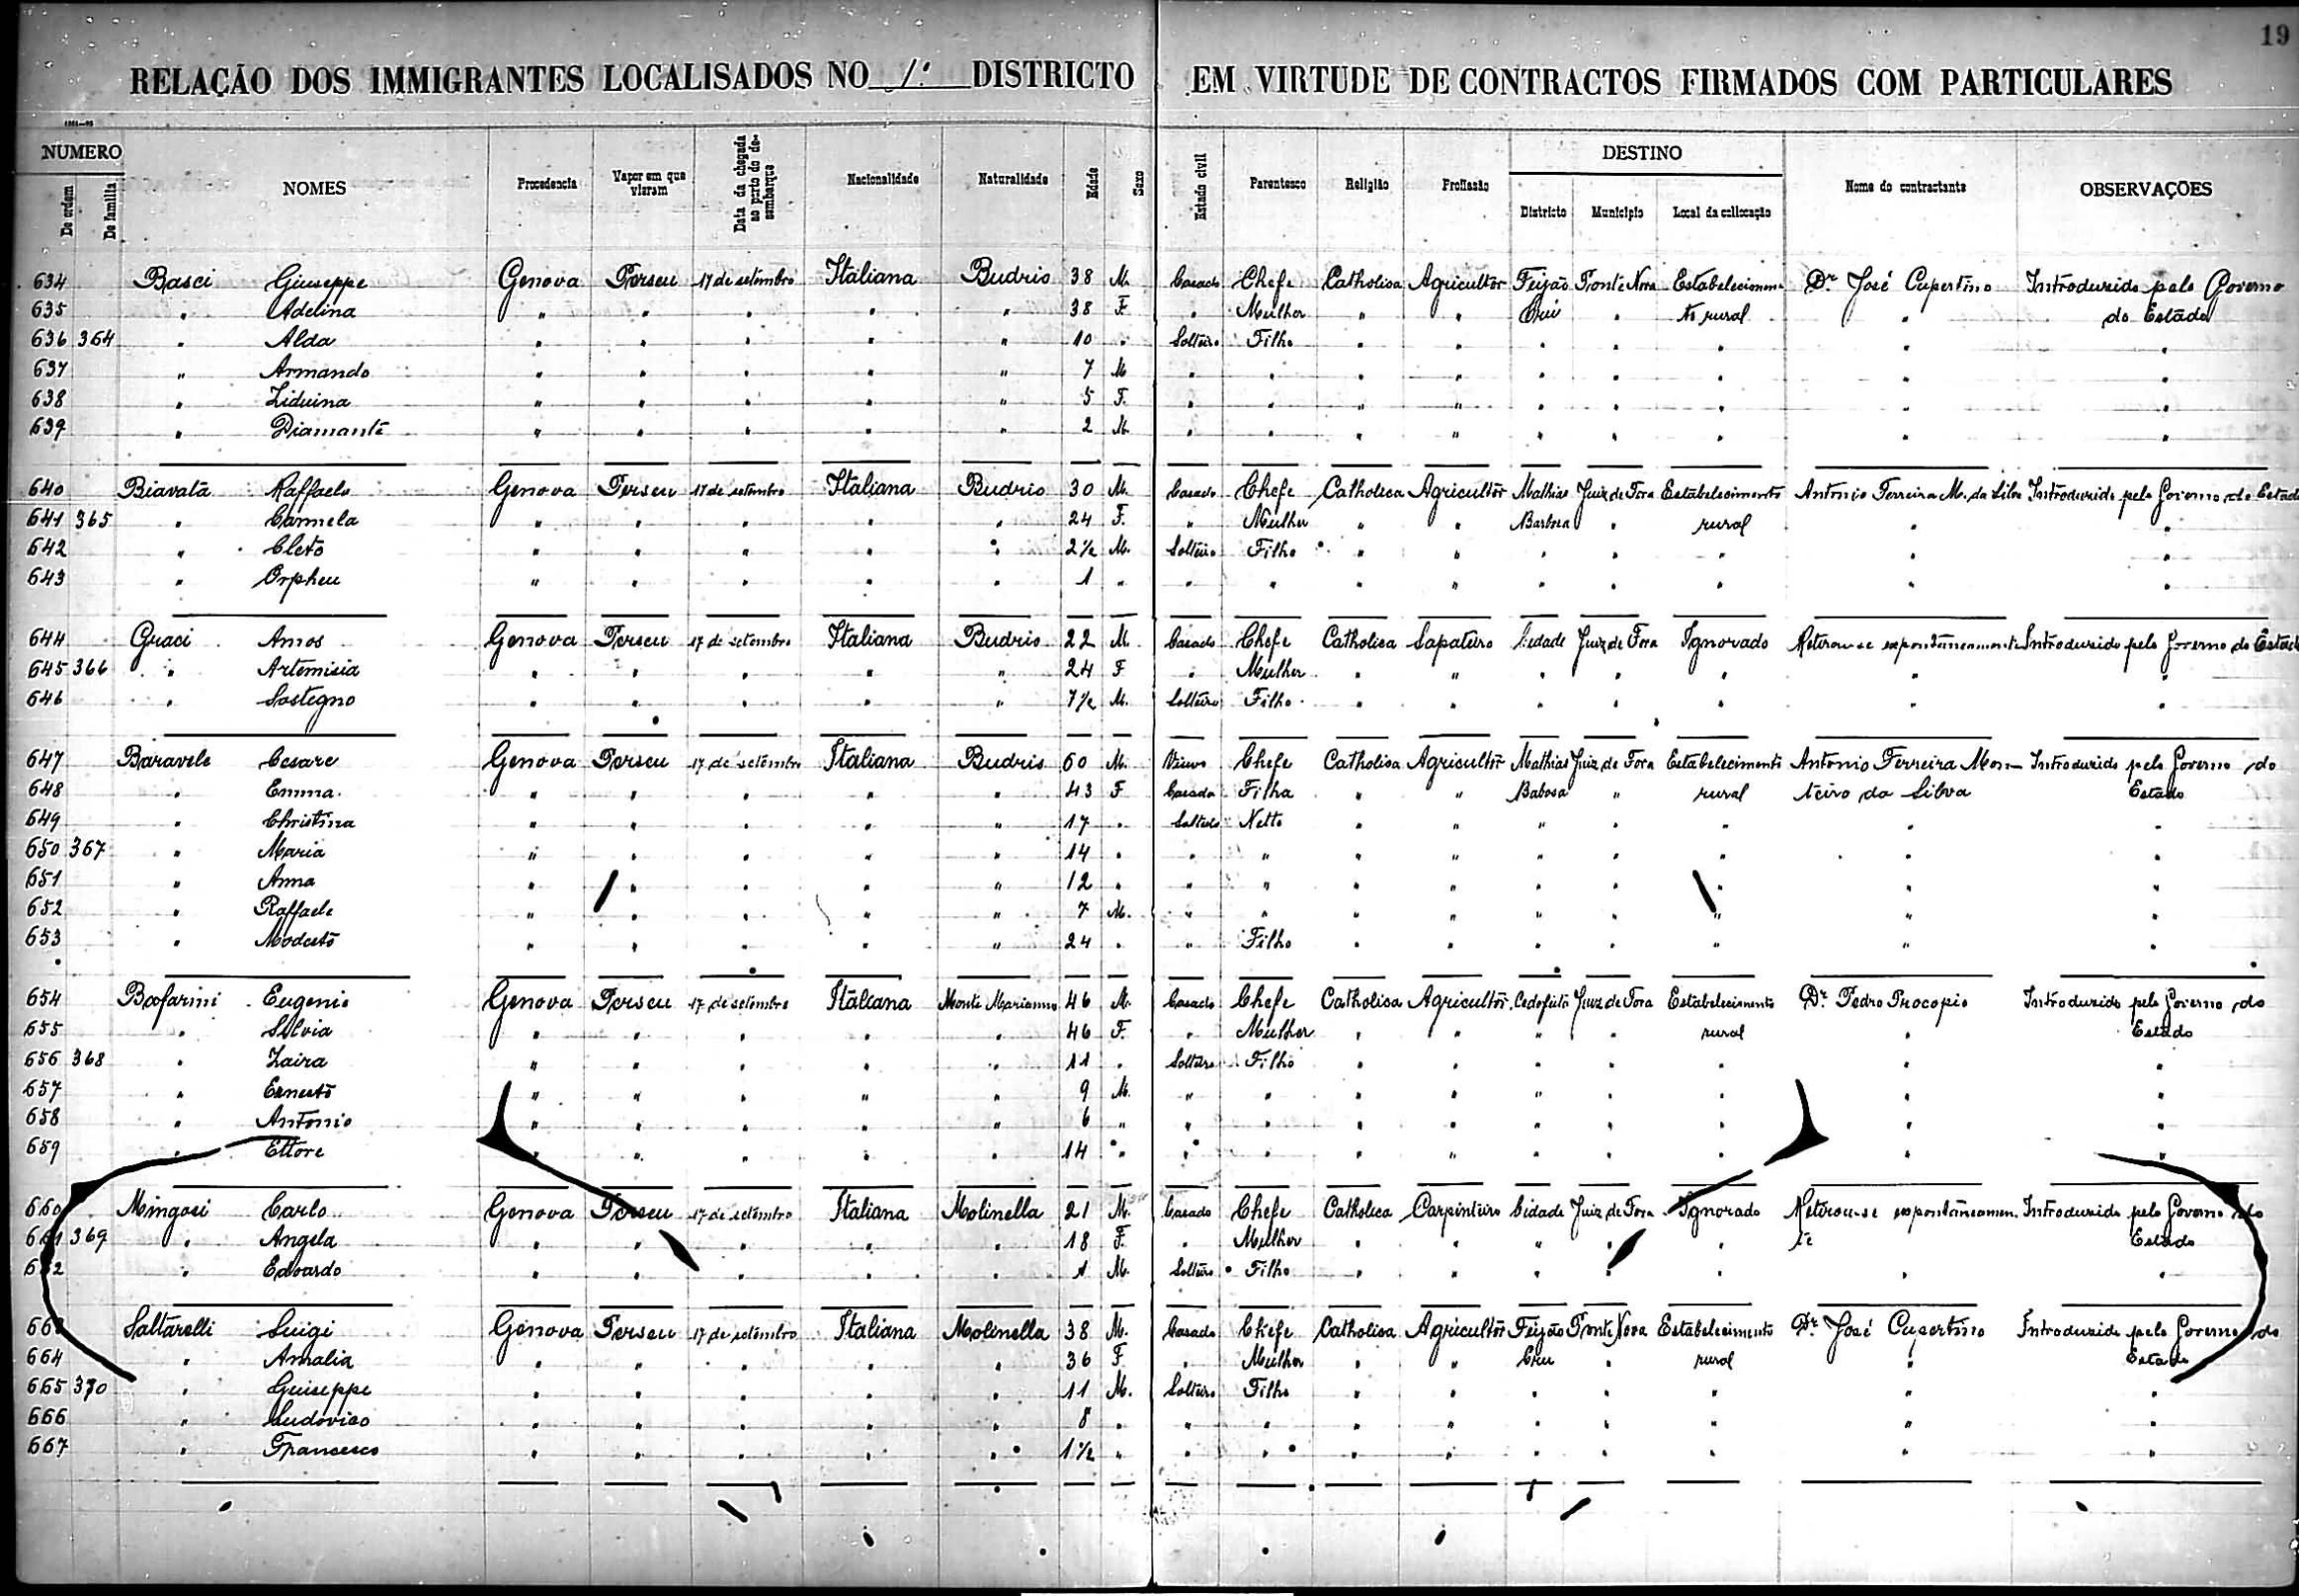 19
RELAÇÃO DOS IMMIGRANTES LOCALISADOS NO 1º DISTRICTO EM VIRTUDE DE CONTRACTOS FIRMADOS COM PARTICULARES
NUMERO
De ordem De familia NOMES Procedencia Vapor em que vieram Data da chegada ao porto do desembarque Nacionalidade Naturalidade Edade Sexo Estado civil Parentesco Religião Profissão DESTINO Districto Municipio Local da collocação Nome do contractante OBSERVAÇÕES
634 Basci Giuseppe Genova Perseu 17 de setembro Italiana Budrio 38 M. Casado Chefe Catholica Agricultôr Feijão Ponte Nova Estabelecimen- Dr. José Cupertino Introduzido pelo Governo
635 " Adelina " " " " " 38 F. " Mulher " " Crú " to rural " do Estado
636 364 " Alda " " " " " 10 " Solteiro Filho " " " " " " "
637 " Armando " " " " " 7 M " " " " " " " " "
638 " Ziduina " " " " " 5 F. " " " " " " " " "
639 " Diamante " " " " " 2 M. " " " " " " " " "
640 Biavata Raffaele Genova Perseu 17 de setembro Italiana Budrio 30 M. Casado Chefe Catholica Agricultôr Mathias Juiz de Fora Estabelecimento Antonio Ferreira M. da Silva Introduzido pelo Governo do Estado
641 365 " Carmela " " " " " 24 F. " Mulher " " Barbosa " rural " "
642 " Cleto " " " " " 2½ M. Solteiro Filho " " " " " " "
643 " Orpheu " " " " " 1 " " " " " " " " " "
644 Guaci Amos Genova Perseu 17 de setembro Italiana Budrio 22 M. Casado Chefe Catholica Sapateiro Cidade Juiz de Fora Ignorado Retirou-se expontaneamente Introduzido pelo Governo do Estado
645 366 " Artemisia " " " " " 24 F " Mulher " " " " " " "
646 " Sostegno " " " " " 7½ M. Solteiro Filho " " " " " " "
647 Baravele Cesare Genova Perseu 17 de setembro Italiana Budrio 60 M. Viuvo Chefe Catholica Agricultôr Mathias Juiz de Fora Estabelecimento Antonio Ferreira Mon- Introduzido pelo Governo do
648 " Emma " " " " " 43 F Casada Filha " " Babosa " rural teiro da Silva Estado
649 " Christina " " " " " 17 " Solteiro Netto " " " " " " "
650 367 " Maria " " " " " 14 " " " " " " " " " "
651 " Anna " " " " " 12 " " " " " " " " " "
652 " Raffaele " " " " " 7 M. " " " " " " " " "
653 " Modesto " " " " " 24 " " Filho " " " " " " "
654 Eugenio Genova Perseu 17 de setembro Italiana Monte Marianno 46 M. Casado Chefe Catholica Agricultôr Cedofeito Juiz de Fora Estabelecimento Dr. Pedro Procopio Introduzido pelo Governo do
655 " Silvia " " " " " 46 F. " Mulher " " " " rural " Estado
656 368 " Zaira " " " " " 11 " Solteiro Filho " " " " " " "
657 " Ernesto " " " " " 9 M. " " " " " " " " "
658 " Antonio " " " " " 6 " " " " " " " " " "
659 " Ettore " " " " " 14 " " " " " " " " " "
660 Mingosi Carlo Genova Perseu 17 de setembro Italiana Molinella 21 M. Casado Chefe Catholica Carpinteiro Cidade Juiz de Fora Ignorado Retirou-se expontaneamen- Introduzido pelo Governo do
661 369 " Angela " " " " " 18 F. " Mulher " " " " " te Estado
662 " Edoardo " " " " " 1 M. Solteiro Filho " " " " " " "
663 Saltarelli Luigi Genova Perseu 17 de setembro Italiana Molinella 38 M. Casado Chefe Catholica Agricultôr Feijão Ponte Nova Estabelecimento Dr. José Cupertino Introduzido pelo Governo do
664 " Amalia " " " " " 36 F " Mulher " " Cru " rural " Estado
665 370 " Guiseppe " " " " " 11 M. Solteiro Filho " " " " " " "
666 " Ludovico " " " " " 8 " " " " " " " " " "
667 " Francesco " " " " " 1½ " " " " " " " " " "